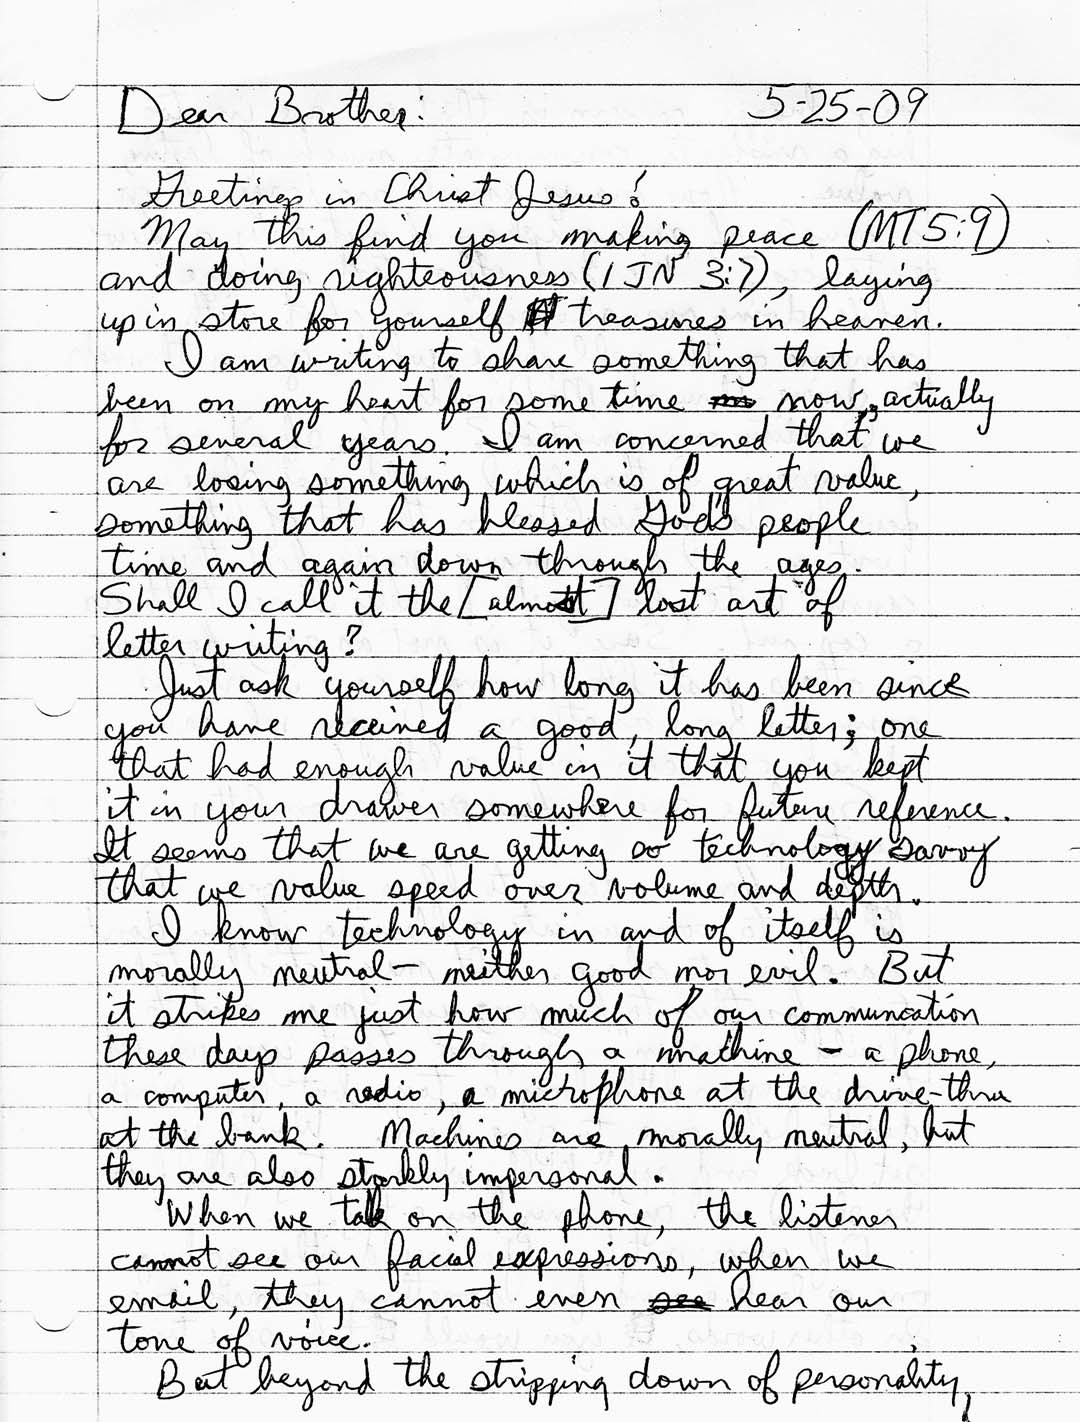 Dear Brother: 5-25-09
Greetings in Christ Jesus!
May this find you making peace (MT 5:9)
and doing righteousness (1 JN 3:7), laying
up in store for yourself treasures in heaven.
I am writing to share something that has
been on my heart for some time now, actually
for several years. I am concerned that we
are losing something which is of great value,
something that has blessed God's people
time and again down through the ages.
Shall I call it the [almost] lost art of
letter writing?
Just ask yourself how long it has been since
you have received a good, long letter; one
that had enough value in it that you kept
it in your drawer somewhere for future reference.
It seems that we are getting so technology savvy
that we value speed over volume and depth.
I know technology in and of itself is
morally neutral - neither good nor evil. But
it strikes me just how much of our communcation
these days passes through a machine - a phone,
a computer, a radio, a microphone at the drive-thru
at the bank. Machines are morally neutral, but
they are also starkly impersonal.
When we talk on the phone, the listener
cannot see our facial expressions, when we
email, they cannot even see hear our
tone of voice.
But beyond the stripping down of personality,